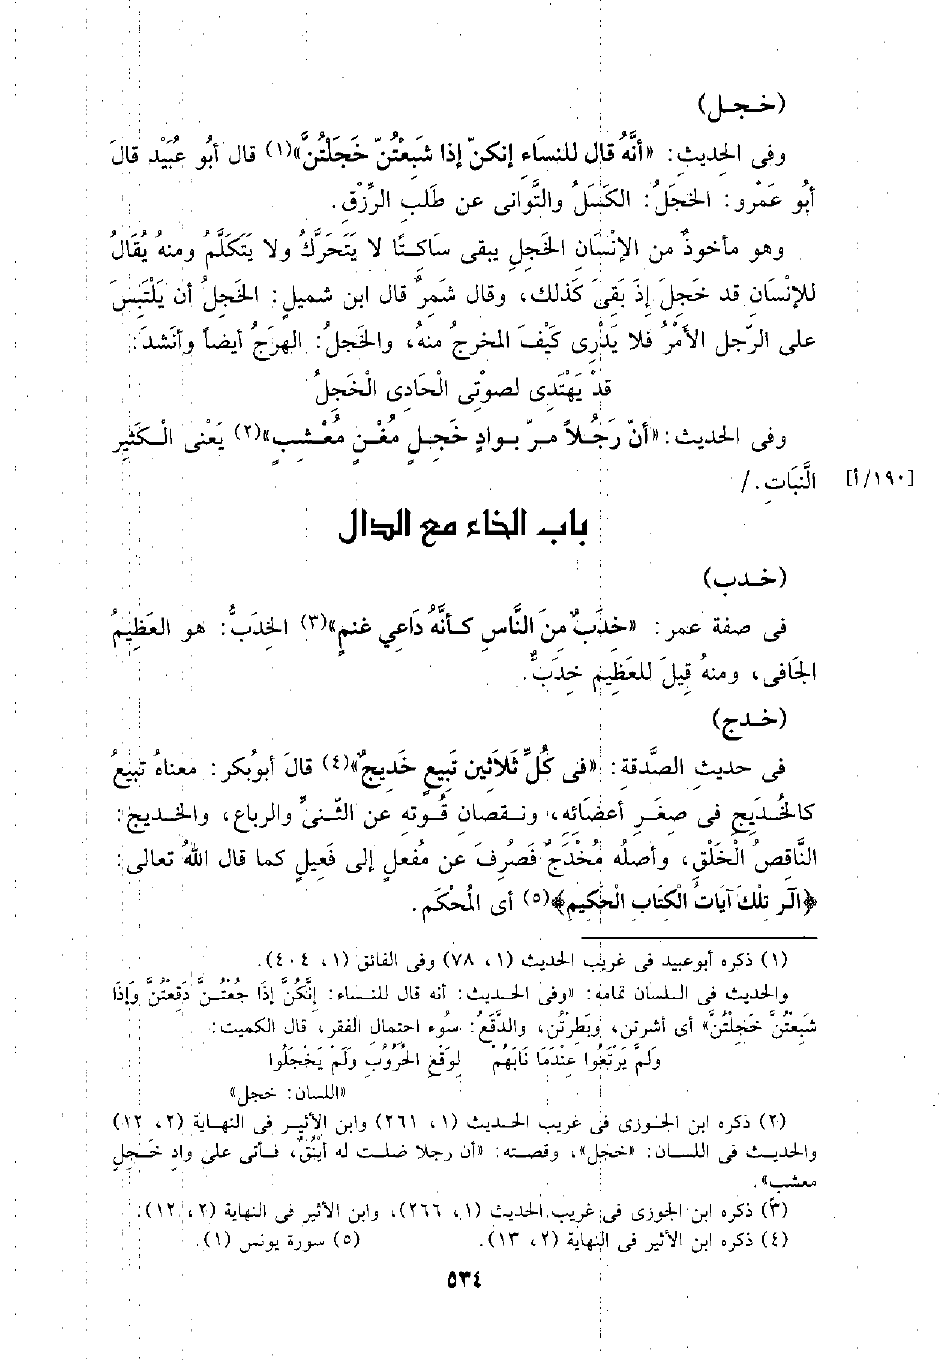 (خجل)
وفى الحديث: «أنَّهُ قال للنسَاءِ إنكنّ إذا شَبَعْتُنّ خَجَلْتُنَّ»(١) قال أبُو عُبَيْد قالَ
أبُو عَمْرو: الخَجَلُ: الكَسَلُ والتَّوانى عن طَلَبِ الرِّزْقِ.
وهو مأخوذٌ من الإنْسَانِ الخَجِلِ يبقى سَاكتًا لا يَتَحَرَّكُ ولا يَتَكَلَّمُ ومنهُ يُقَالُ
للإنْسَانِ قد خَجِلَ إذَ بَقىَ كَذلك، وقال شَمِرٌ قال ابن شميلٍ: الخَجلُ أن يَلْتَبِسَ
على الرّجل الأمْرُ فلا يَدْرِى كَيْفَ المخرجُ منهُ، والخَجلُ: الهرَجُ أيضاً وأنْشدَ:
قدْ يَهْتَدى لصوْتى الْحَادى الْخَجِلُ
وفى الحديث: «أنّ رَجُلاً مرّ بوادٍ خَجِلٍ مُغْنٍ مُعْشبٍ»(٢) يَعْنى الْكَثيرِ
النَّبَاتِ./ [١٩٠/أ]
باب الخاء مع الدال
(خدب)
فى صفة عمر: «خدَبٌّ منَ النَّاسِ كأنَّهُ دَاعِي غنمٍ»(٣) الخِدَبُّ: هو العَظِيمُ
الجَافى، ومنهُ قِيلَ للعَظِيمِ خِدَبٌّ.
(خدج)
فى حديثِ الصَّدقة: «فى كُلِّ ثَلاَثِين تَبِيعٍ خَدِيجٌ»(٤) قالَ أبوُبكر: معناهُ تبيعُ
كالخُدَيجِ فى صِغَرِ أعضَائه، ونقصَانِ قُوته عن الثَّنىِّ والرباع، والخديج:
النَّاقصُ الْخَلْقِ، وأصلُه مُخْدَجٌ فَصُرِفَ عن مُفْعلٍ إلى فَعِيلٍ كما قال اللهُ تعالى:
﴿الَر تلْكَ آيَاتُ الْكتَابِ الْحَكِيمِ﴾(٥) أى المُحْكَمِ.
(١) ذكره أبوعبيد فى غريب الحديث (١، ٧٨) وفى الفائق (١، ٤٠٤).
والحديث فى اللسان تمامه: «وفى الحديث: أنه قال للنساء: إنَّكُنَّ إذَا جُعْتُنَّ دَقِعْتُنَّ وَإذَا
شَبعْتُنَّ خَجلْتُنَّ» أى أشرتن، وبَطِرْتُن، والدَّقَعُ: سُوء احتمال الفقر، قال الكميت:
وَلَمْ يَرْتَعُوا عِنْدَمَا نَابَهُمْ لِوَقْعِ الحُرُوُبِ وَلَمْ يَخْجَلُوا
«اللسان: خجل»
(٢) ذكره ابن الجوزى فى غريب الحديث (١، ٢٦١) وابن الأثير فى النهاية (٢، ١٢)
والحديث فى اللسان: «خجل»، وقصته: «أن رجلا ضلت له أيْنُقٌ، فأتى على وادٍ خَجِلٍ
معشب».
(٣) ذكره ابن الجوزى فى غريب الحديث (١، ٢٦٦)، وابن الأثير فى النهاية (٢، ١٢).
(٤) ذكره ابن الأثير فى النهاية (٢، ١٣). (٥) سورة يونس (١).
٥٣٤